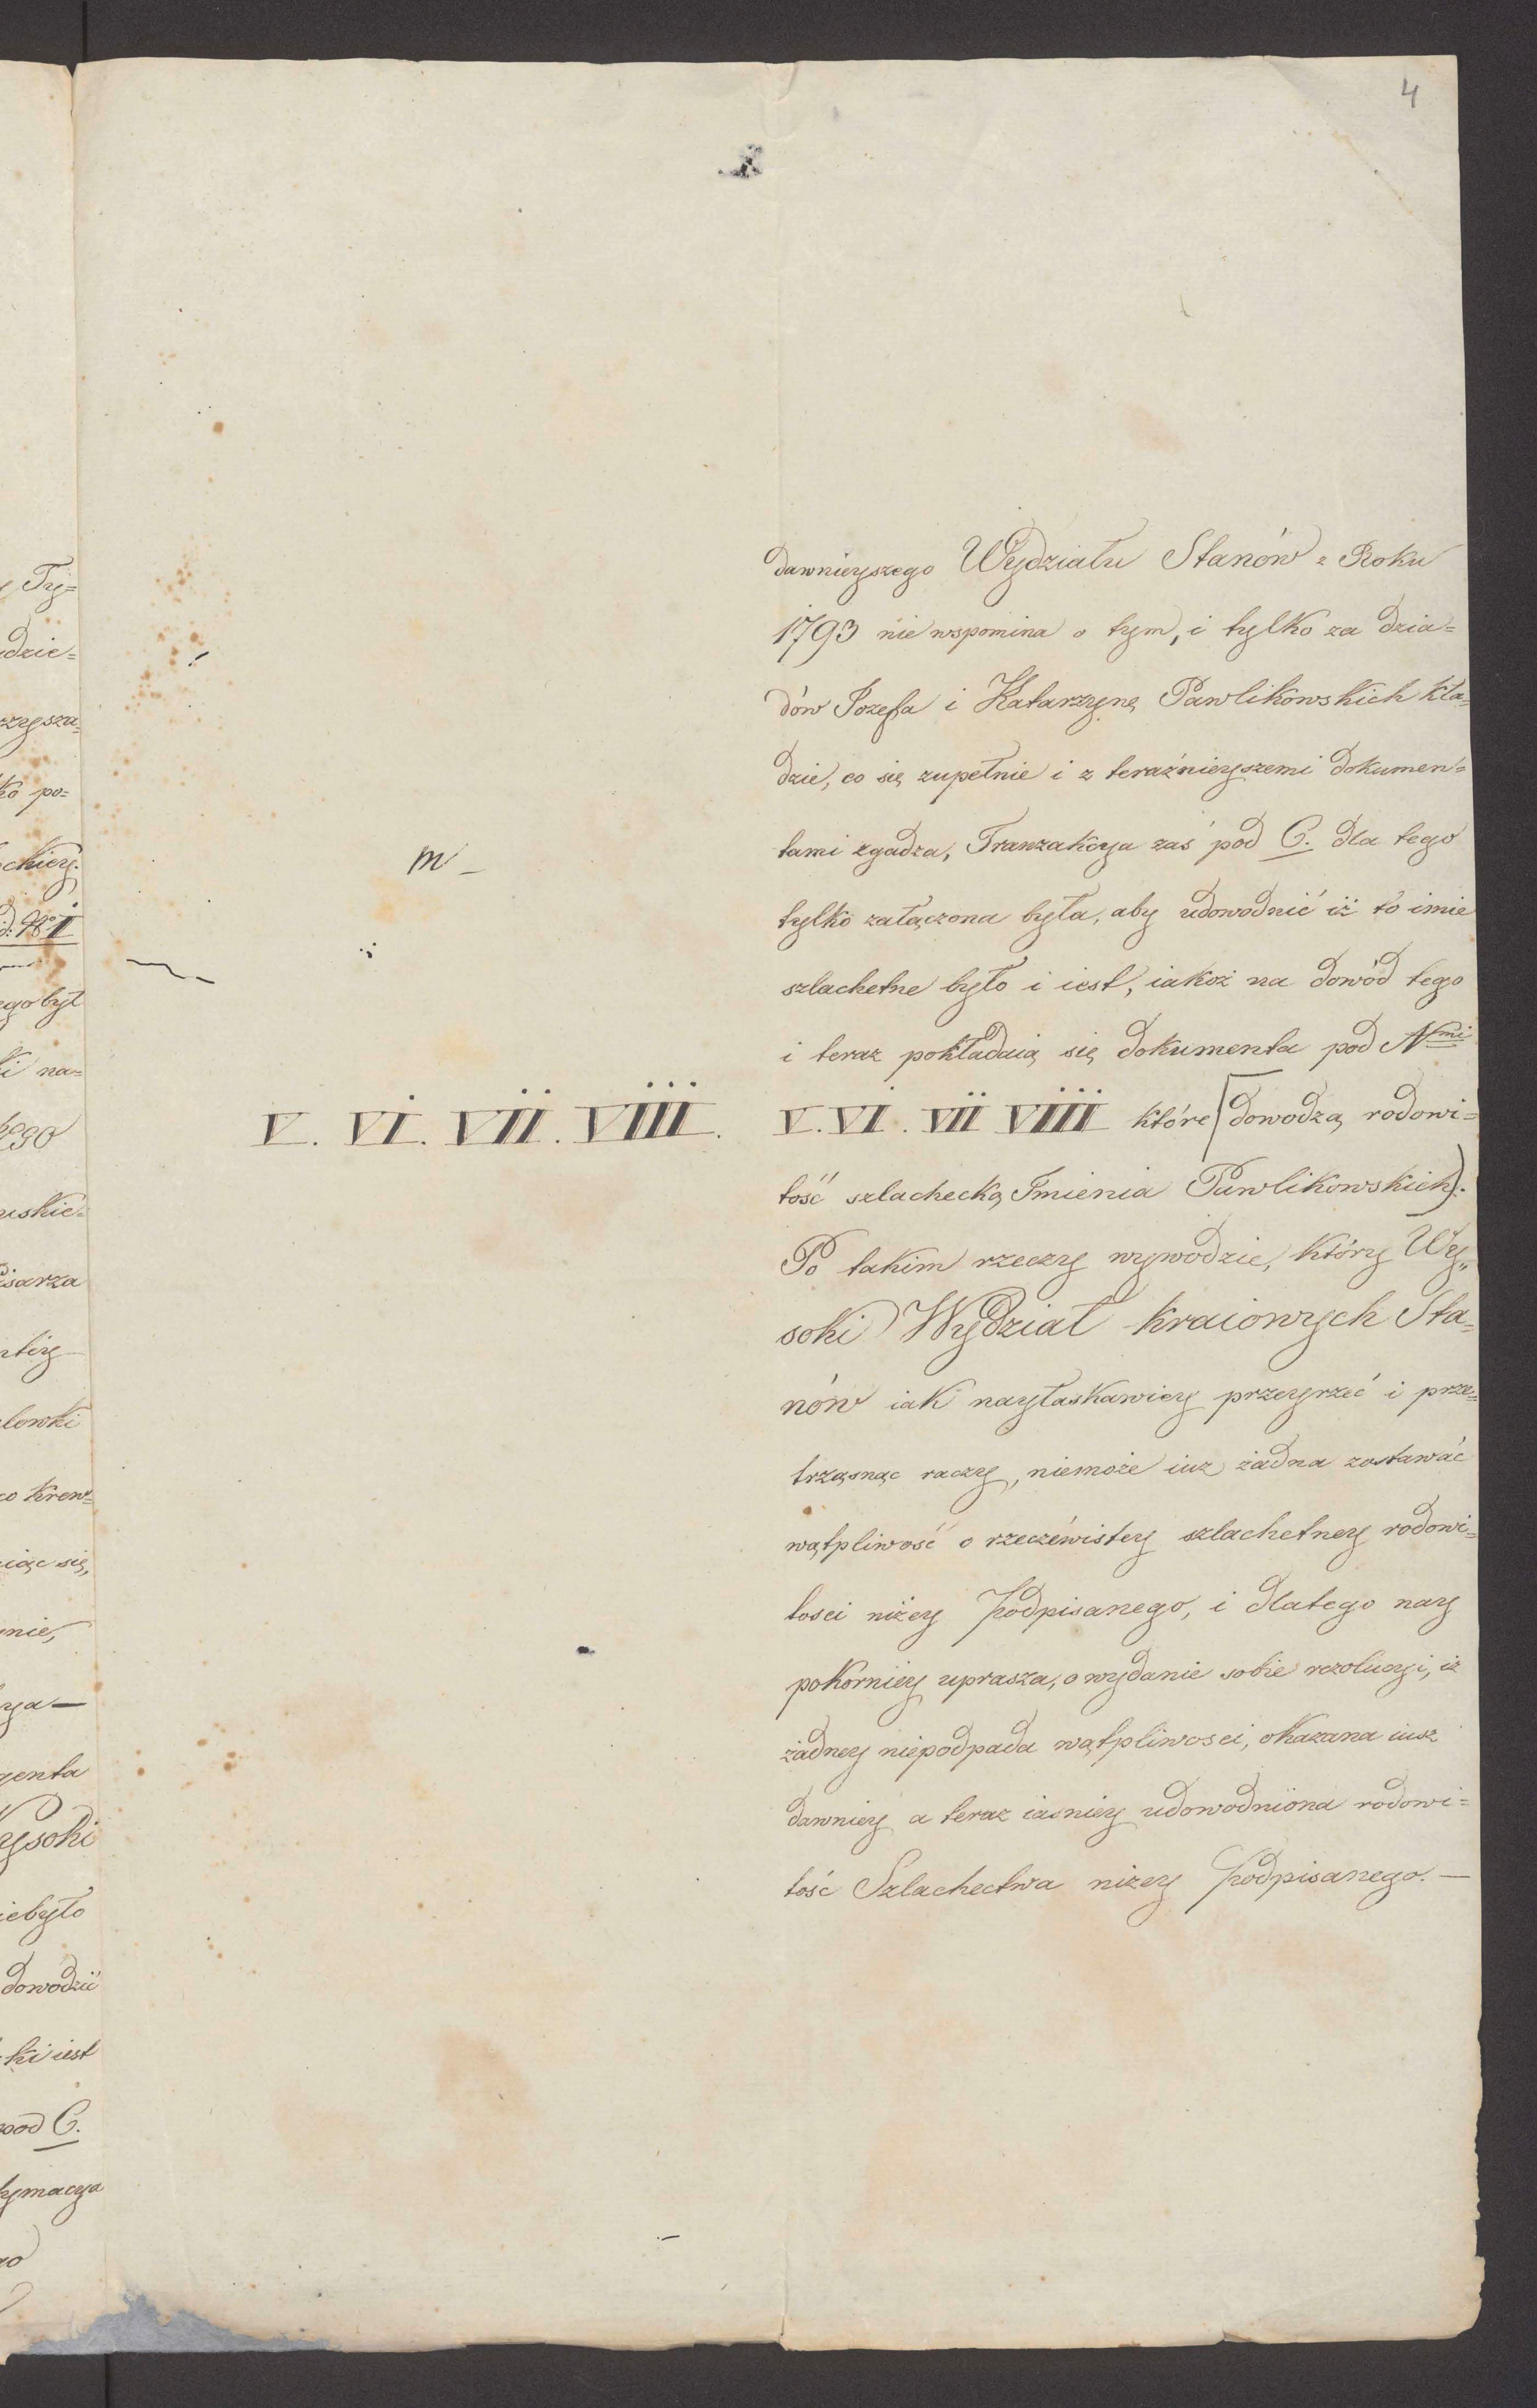 4
dawnieyszego Wydziału Stanów z Roku
1793 nie wspomina o tym, i tylko za dzia=
dów Jozefa i Katarzynę Pawlikowskich kła=
dzie, co się zupełnie i z teraźnieyszemi dokumen=
tami zgadza, Tranzakcya zaś pod C. dla tego
tylko załączona była, aby udowodnić iż to imie
szlachetne było i iest, iakoż na dowód tego
i teraz pokładaią się dokumenta pod Nmi
V. VI. VII. VIII.
V. VI. VII VIII które [dowodzą rodowi=
tość szlachecką Imienia Pawlikowskich).
Po takim rzeczy wywodzie, który Wy„
soki Wydział kraiowych Sta=
nów iak nayłaskawiey przeyrzeć i prze=
trząsnąc raczy, niemoże iuz żadna zostawać
wątpliwość o rzeczéwistey szlachetney rodowi=
tosci niżey podpisanego, i dlatego nay
pokorniéy uprasza, o wydanie sobie rezolucyi, iż
żadney niepodpada wątpliwosci, okazana iusz
dawniey a teraz iasniey udowodniona rodowi=
tość Szlachectwa niżey podpisanego. —
m –
y Try=
dzie=
zysza=
ko po=
ckiey.
d. No I
ego był
ki na=
ego
uskie=
isarza
ntiy
lewki
co krew=
iąc się,
mie,
ya —
genta
ysoki
iebyło
dowodzić
ki iest
pod C.
tymacya